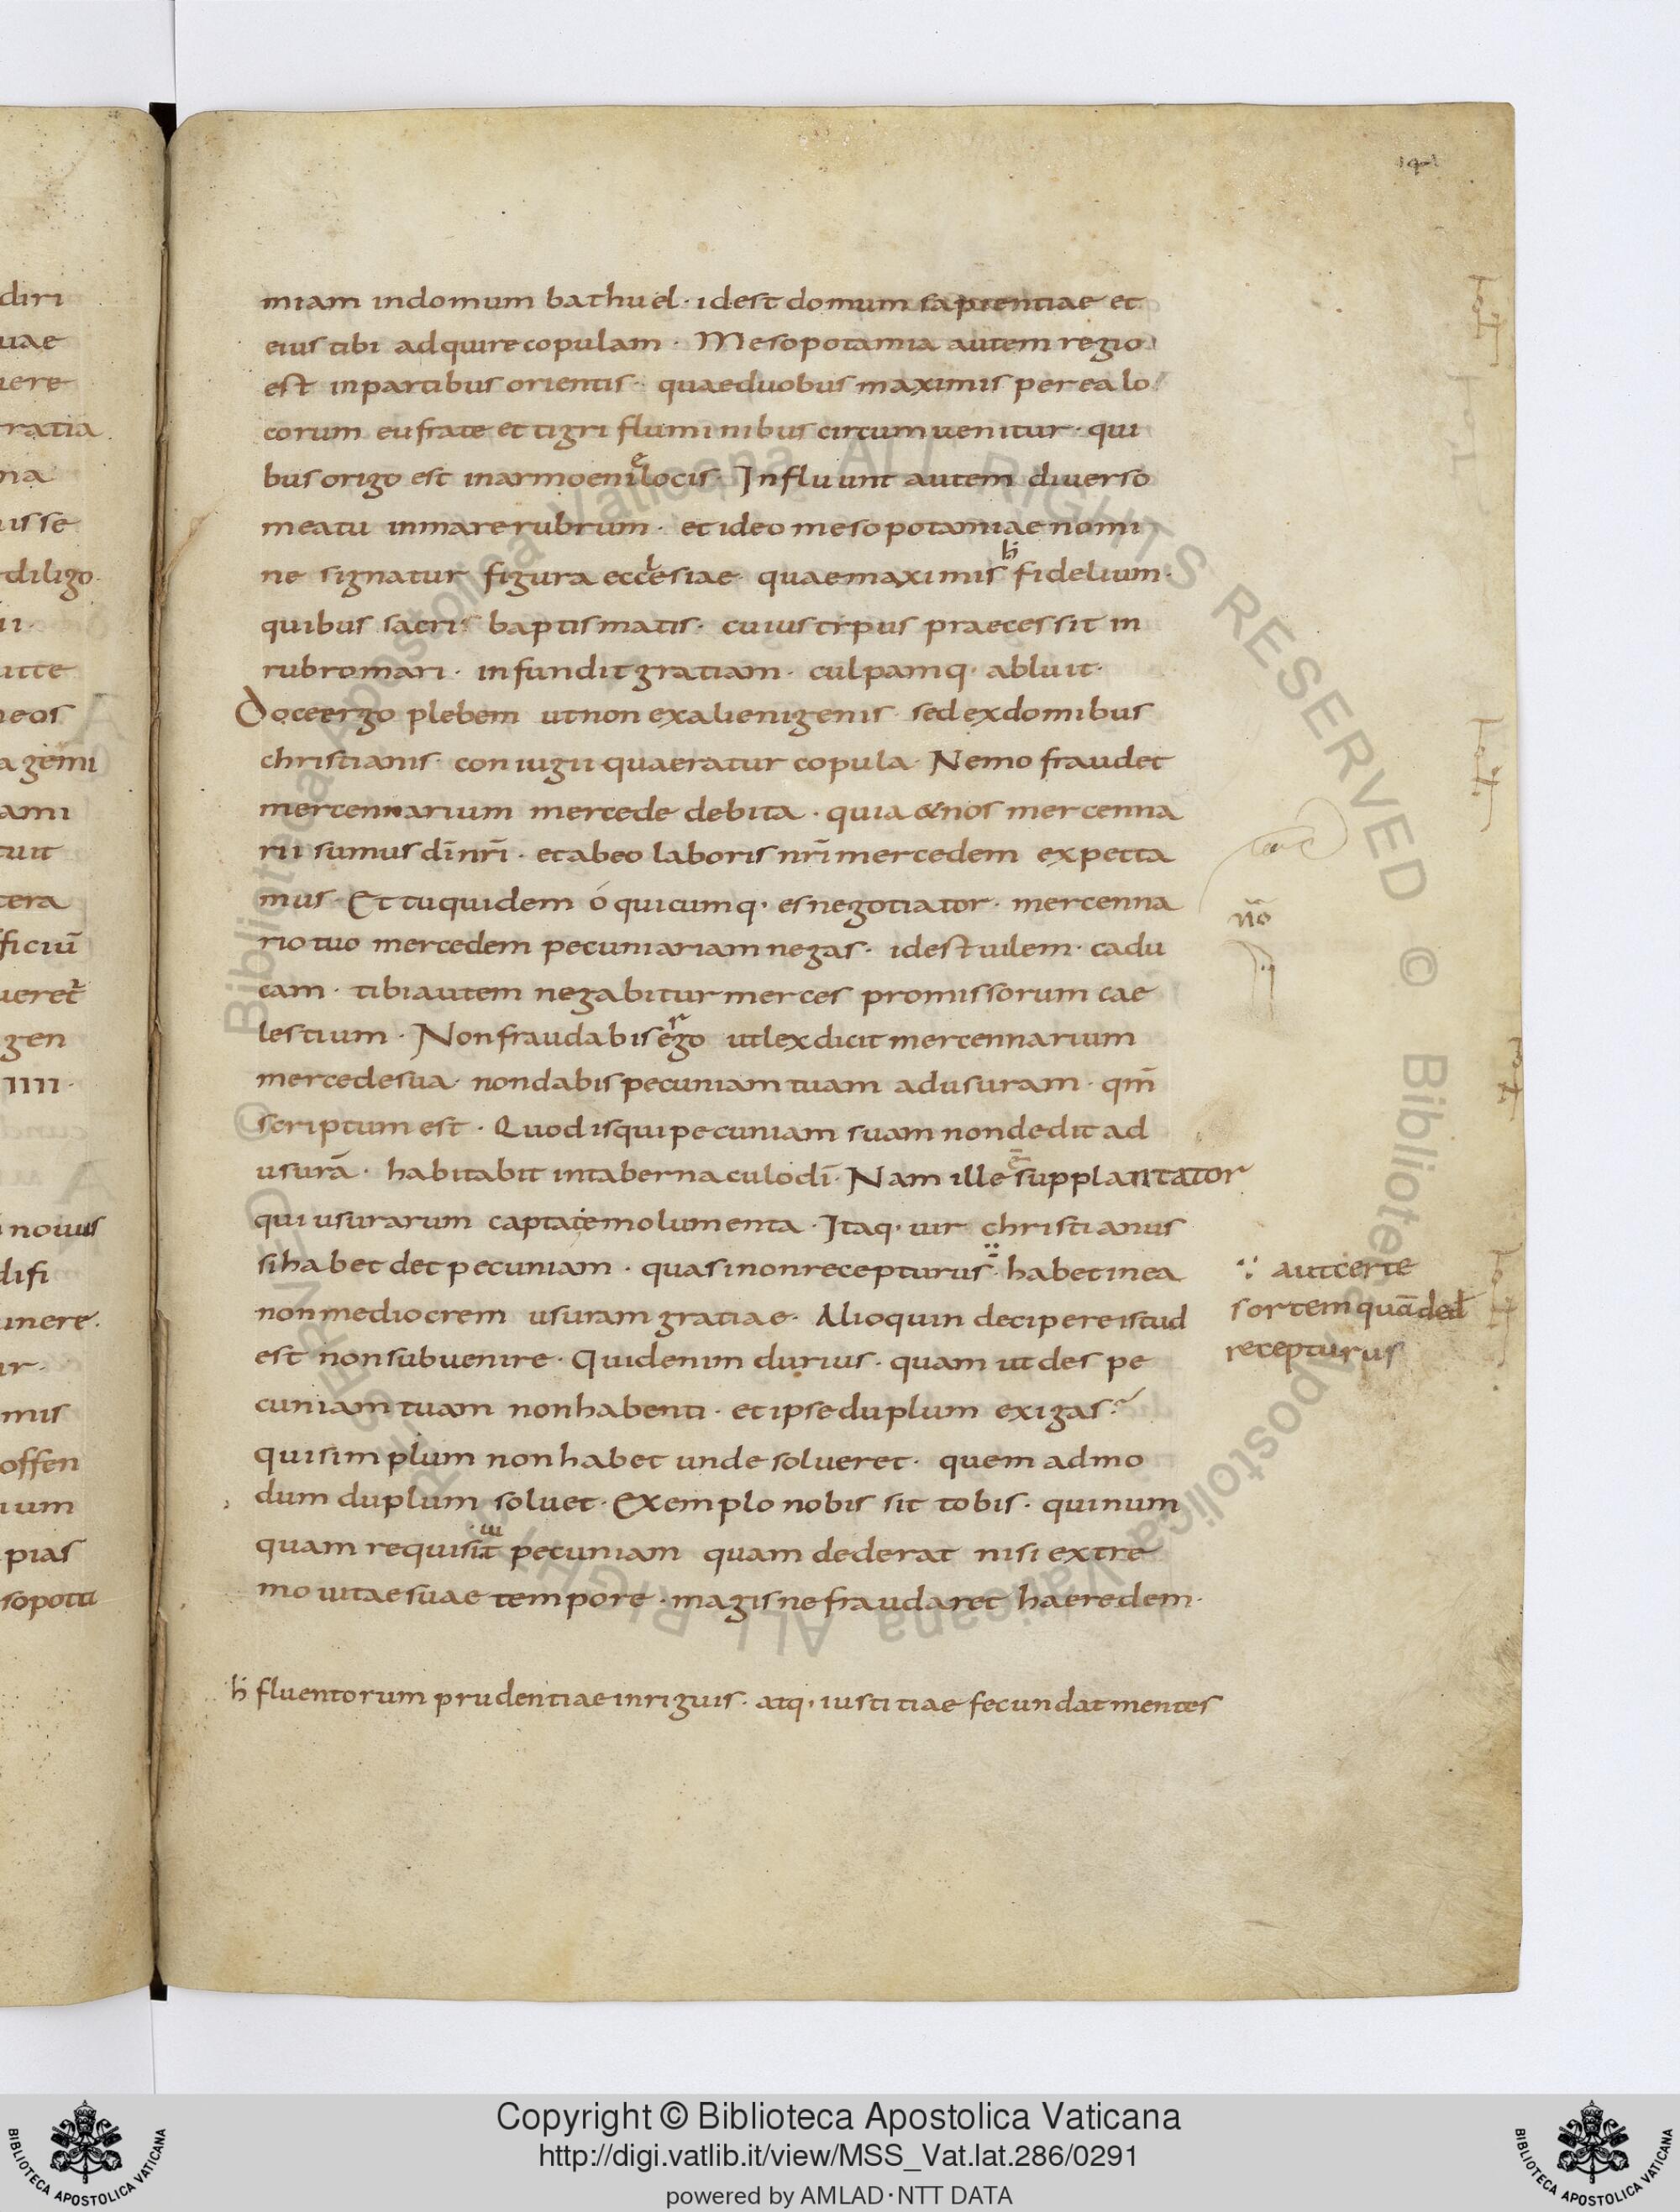 141
miam in domum bathuel · id est domum sapientiae et
eius tibi adquire copulam · Mesopotamia autem regio
est in partibus orientis · quae duobus maximis per ea lo
corum eufrate et tigri fluminibus circumuenitur · qui
bus origo est in armoeniae locis · Influunt autem diuerso
meatu in mare rubrum · et ideo mesopotamiae nomi
ne signatur figura ecclesiae · quae maximis h̄ fidelium ·
quibus sacris baptismatis · cuius tipus praecessit in
rubro mari · infundit gratiam · culpamq· abluit ·
Doce ergo plebem ut non ex alienigenis · sed ex domibus
christianis · coniugii quaeratur copula · Nemo fraudet
mercennarium mercede debita · quia & nos mercenna
rii sumus dī nr̄i · et ab eo laboris nr̄i mercedem expecta
mus · Et tu quidem ó quicumq· es negotiator · mercenna
rio tuo mercedem pecuniariam negas · id est uilem · cadu
cam · tibi autem negabitur merces promissorum cae
lestium · Non fraudabis ergo ut lex dicit mercennarium
mercede sua · non dabis pecuniam tuam ad usuram · qm̄
scriptum est · Quod is qui pecuniam suam non dedit ad
usurā · habitabit in tabernaculo dī · Nam ille ē supplantator
qui usurarum captat emolumenta · Itaq· uir christianus
si habet det pecuniam · quasi non recepturus · habet in ea
non mediocrem usuram gratiae · Alioquin decipere istud
est non subuenire · Quid enim durius · quam ut des pe
cuniam tuam non habenti · et ipse duplum exigas?
qui simplum non habet unde solueret · quem admo
dum duplum soluet · Exemplo nobis sit tobis · qui num
quam requisiuit pecuniam quam dederat nisi extre
mo uitae suae tempore · magis ne fraudaret haeredem ·
h̄ fluentorum prudentiae inriguis · atq· iustitiae fecundat mentes
nō
aut certe
sortem quā ded
recepturus
diri
uae
uere
ratia
na
uisse
diligo
ii ·
utte
neos
a gemi
ami
tuit
tera
ficiū
ueret
gen
IIII ·
nouus
difi
inere ·
ur ·
mis
offen
ium
pias
sopota
© Biblioteca Apostolica Vaticana ALL RIGHTS RESERVED © Biblioteca Apostolica Vaticana ALL RIGHTS RESERVED
Copyright © Biblioteca Apostolica Vaticana
http://digi.vatlib.it/view/MSS_Vat.lat.286/0291
powered by AMLAD·NTT DATA
BIBLIOTECA APOSTOLICA VATICANA
BIBLIOTECA APOSTOLICA VATICANA